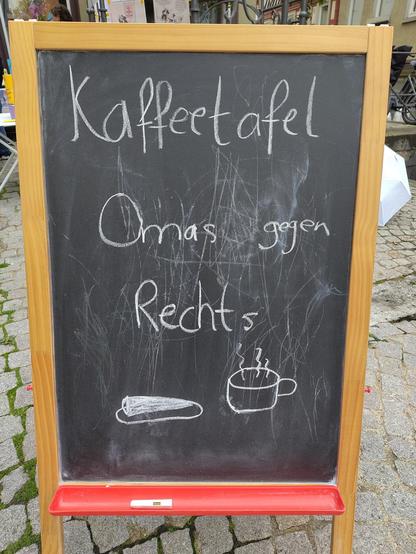 Kaffeetafel
Omas gegen
Rechts